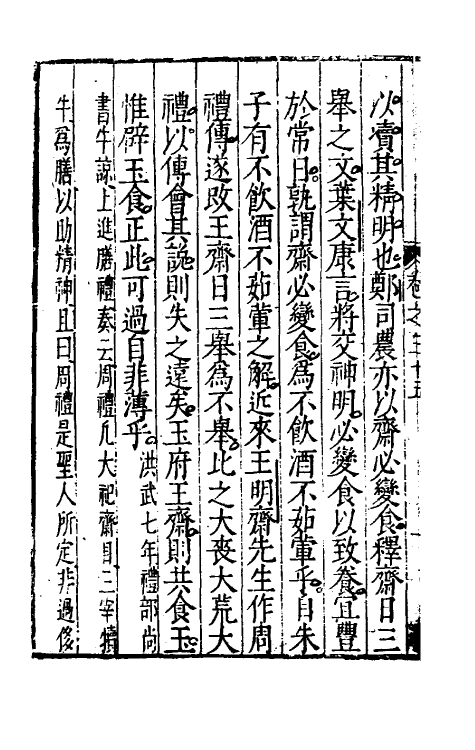 以賣其精明也鄭司農亦以齋必變食釋齋日三
舉之文葉文康言將交神明必變食以致養宜豐
於常日孰謂齋必變食為不飲酒不茹葷乎自朱
子有不飲酒不茹葷之解近來王明齋先生作周
禮傳遂改王齋日三舉為不舉比之大喪大荒大
禮以傳會其說則失之遠矣玉府王齋則共食玉
惟辟玉食正此可過自非薄乎洪武七年禮部尚
書牛諒上進膳禮奏云周禮凡大祀齋日三宰犢
牛為膳以助精神且曰周禮是聖人所定非過侈
卷之二十五